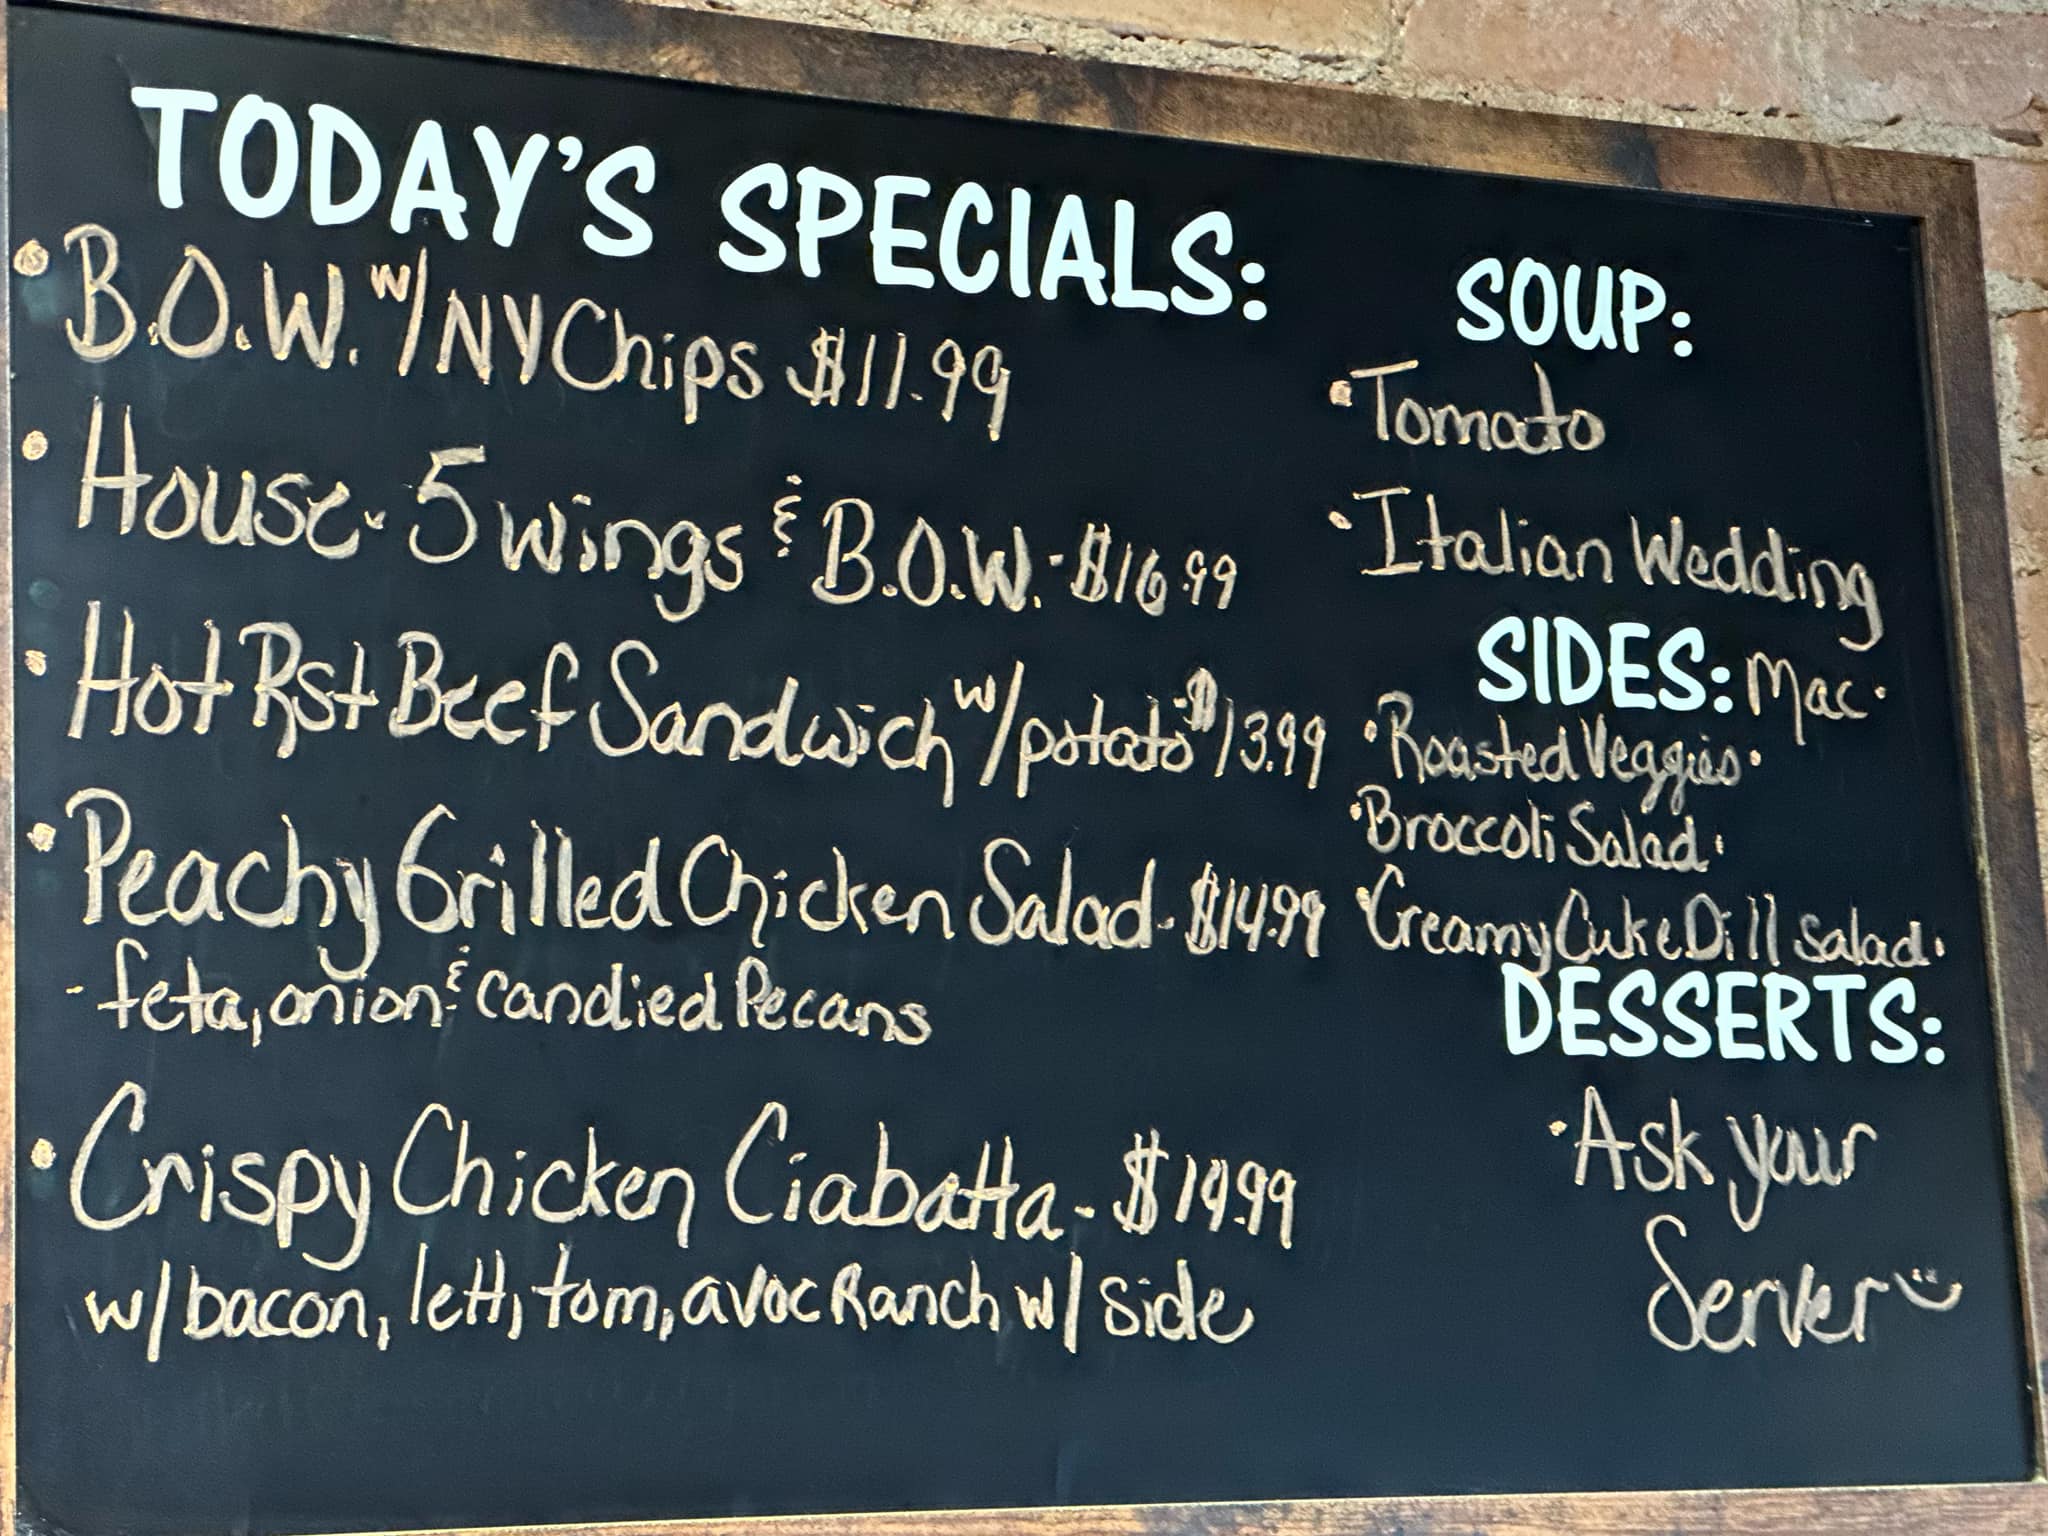 TODAY'S SPECIALS:
• B.O.W. w/ NY Chips $11.99
• House - 5 wings & B.O.W. - $16.99
• Hot Rst Beef Sandwich w/ potato - $13.99
• Peachy Grilled Chicken Salad - $14.99
- feta, onion & candied Pecans
• Crispy Chicken Ciabatta - $14.99
w/ bacon, lett, tom, avoc Ranch w/ side
SOUP:
• Tomato
• Italian Wedding
SIDES: Mac •
• Roasted Veggies •
• Broccoli Salad •
• Creamy Cuke Dill salad •
DESSERTS:
• Ask your
Server